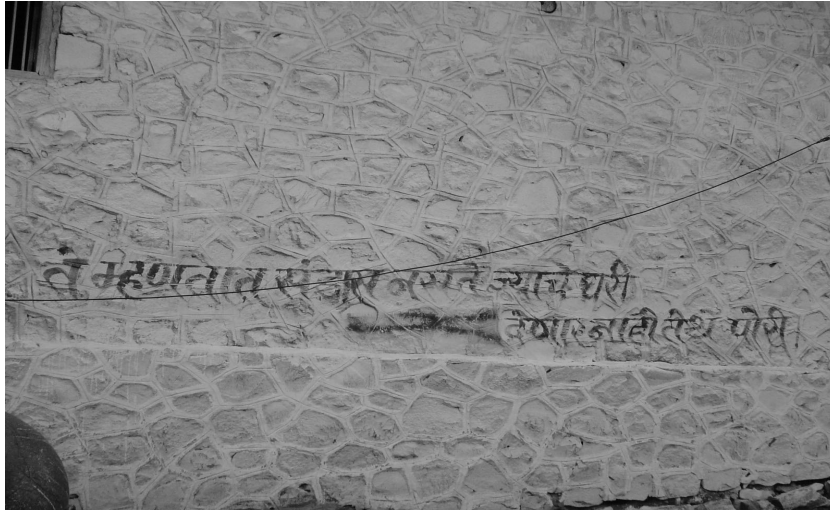 म्हणतात संडास नसले ज्याचे घरी
देणार नाही तीथे पोरी